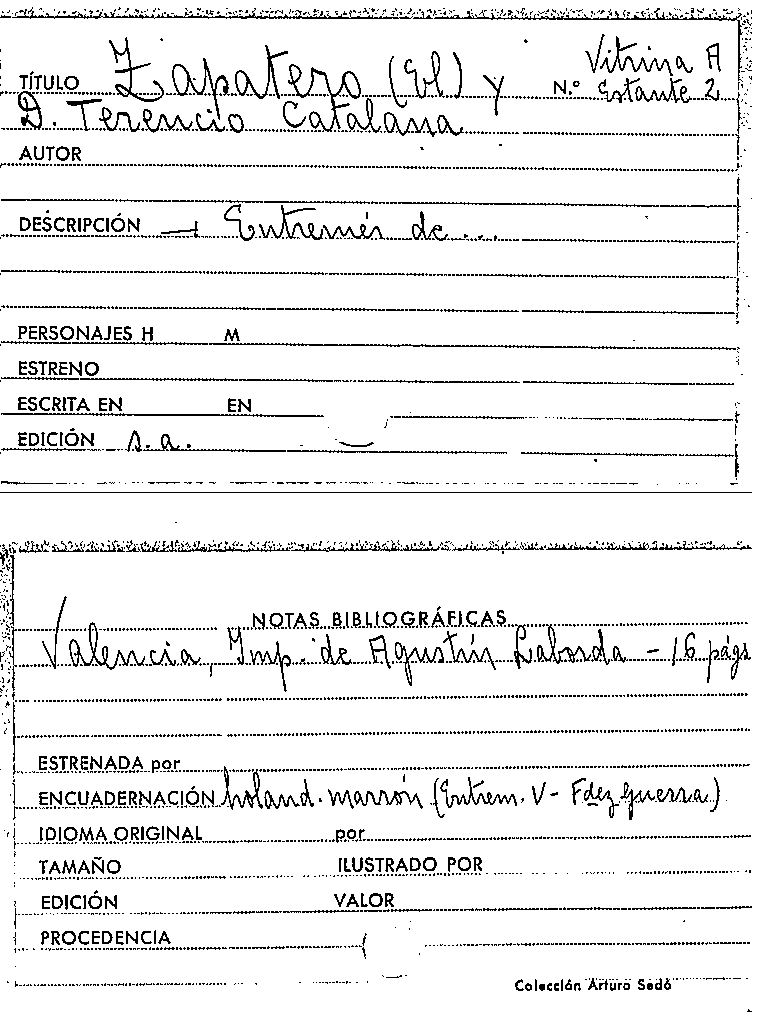 TÍTULO Zapatero (El) y N.º Vitrina A Estante 2
D. Terencio Catalana
AUTOR
DESCRIPCIÓN — Entremés de...
PERSONAJES H M
ESTRENO
ESCRITA EN EN
EDICIÓN s.a.
NOTAS BIBLIOGRÁFICAS
Valencia, Imp. de Agustín Laborda - 16 págs
ESTRENADA por
ENCUADERNACIÓN holand. marrón (Entrem. V - Fdez guerra)
IDIOMA ORIGINAL por
TAMAÑO ILUSTRADO POR
EDICIÓN VALOR
PROCEDENCIA
Colección Arturo Sedó